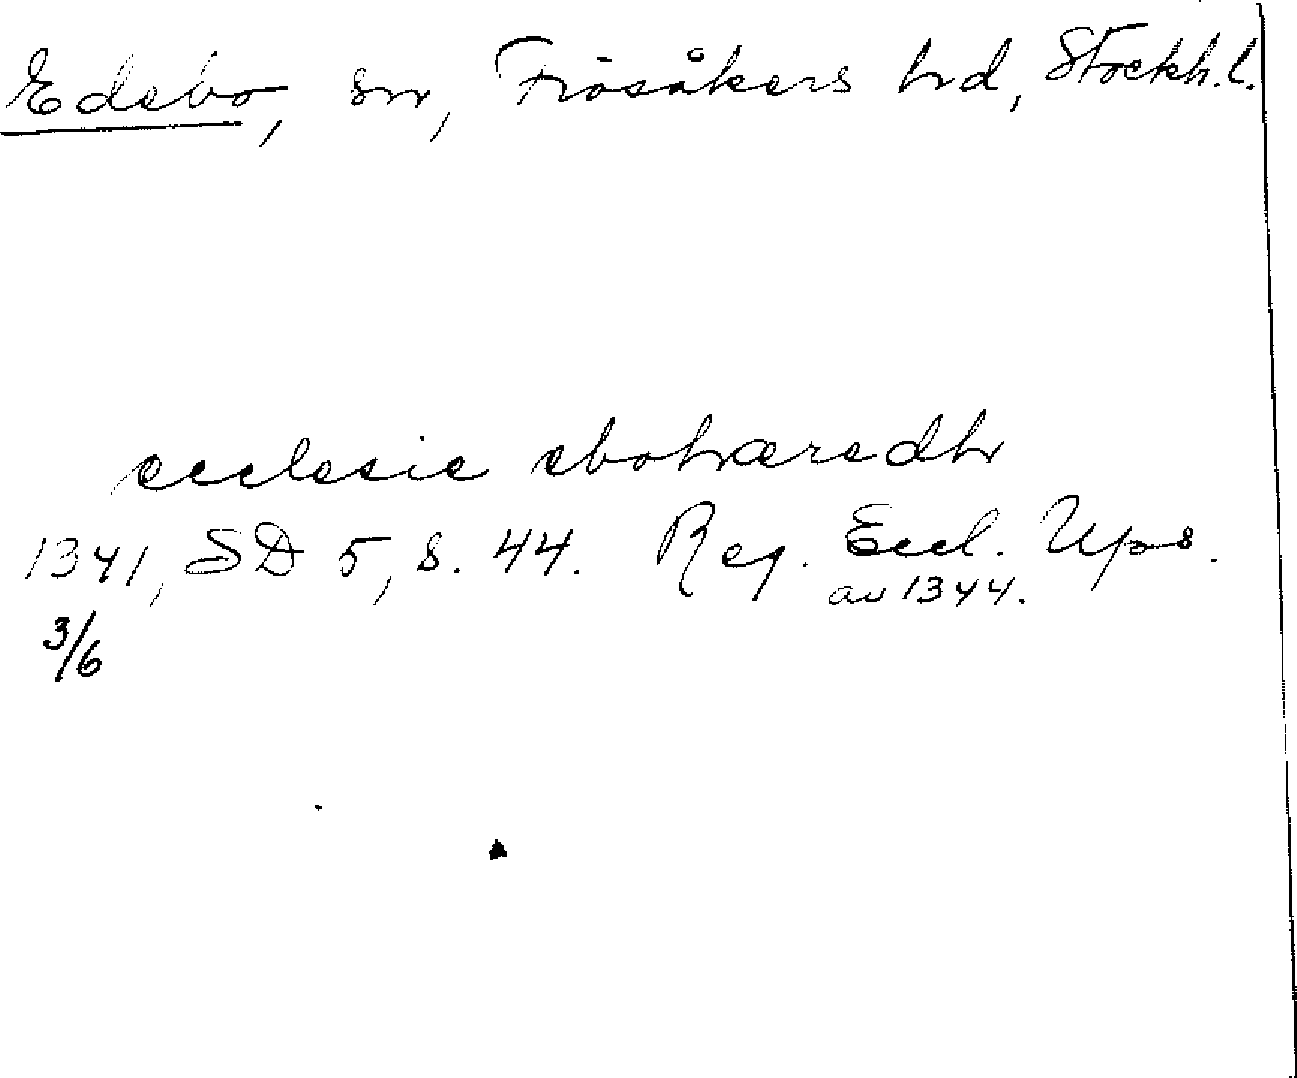 Edebo, sn, Frösåkers hd, Stockh. l.
ecclesie ebohæredh
1341, SD 5, s. 44. Reg. Eccl. Ups.
av 1344.
3/6